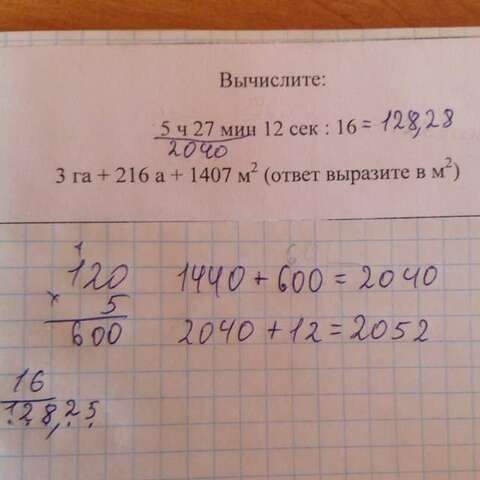 Вычислите:
5 ч 27 мин 12 сек : 16 = 128,28
2040
3 га + 216 а + 1407 м² (ответ выразите в м²)
1
120
× 5
600
1440 + 600 = 2040
2040 + 12 = 2052
16
128,25